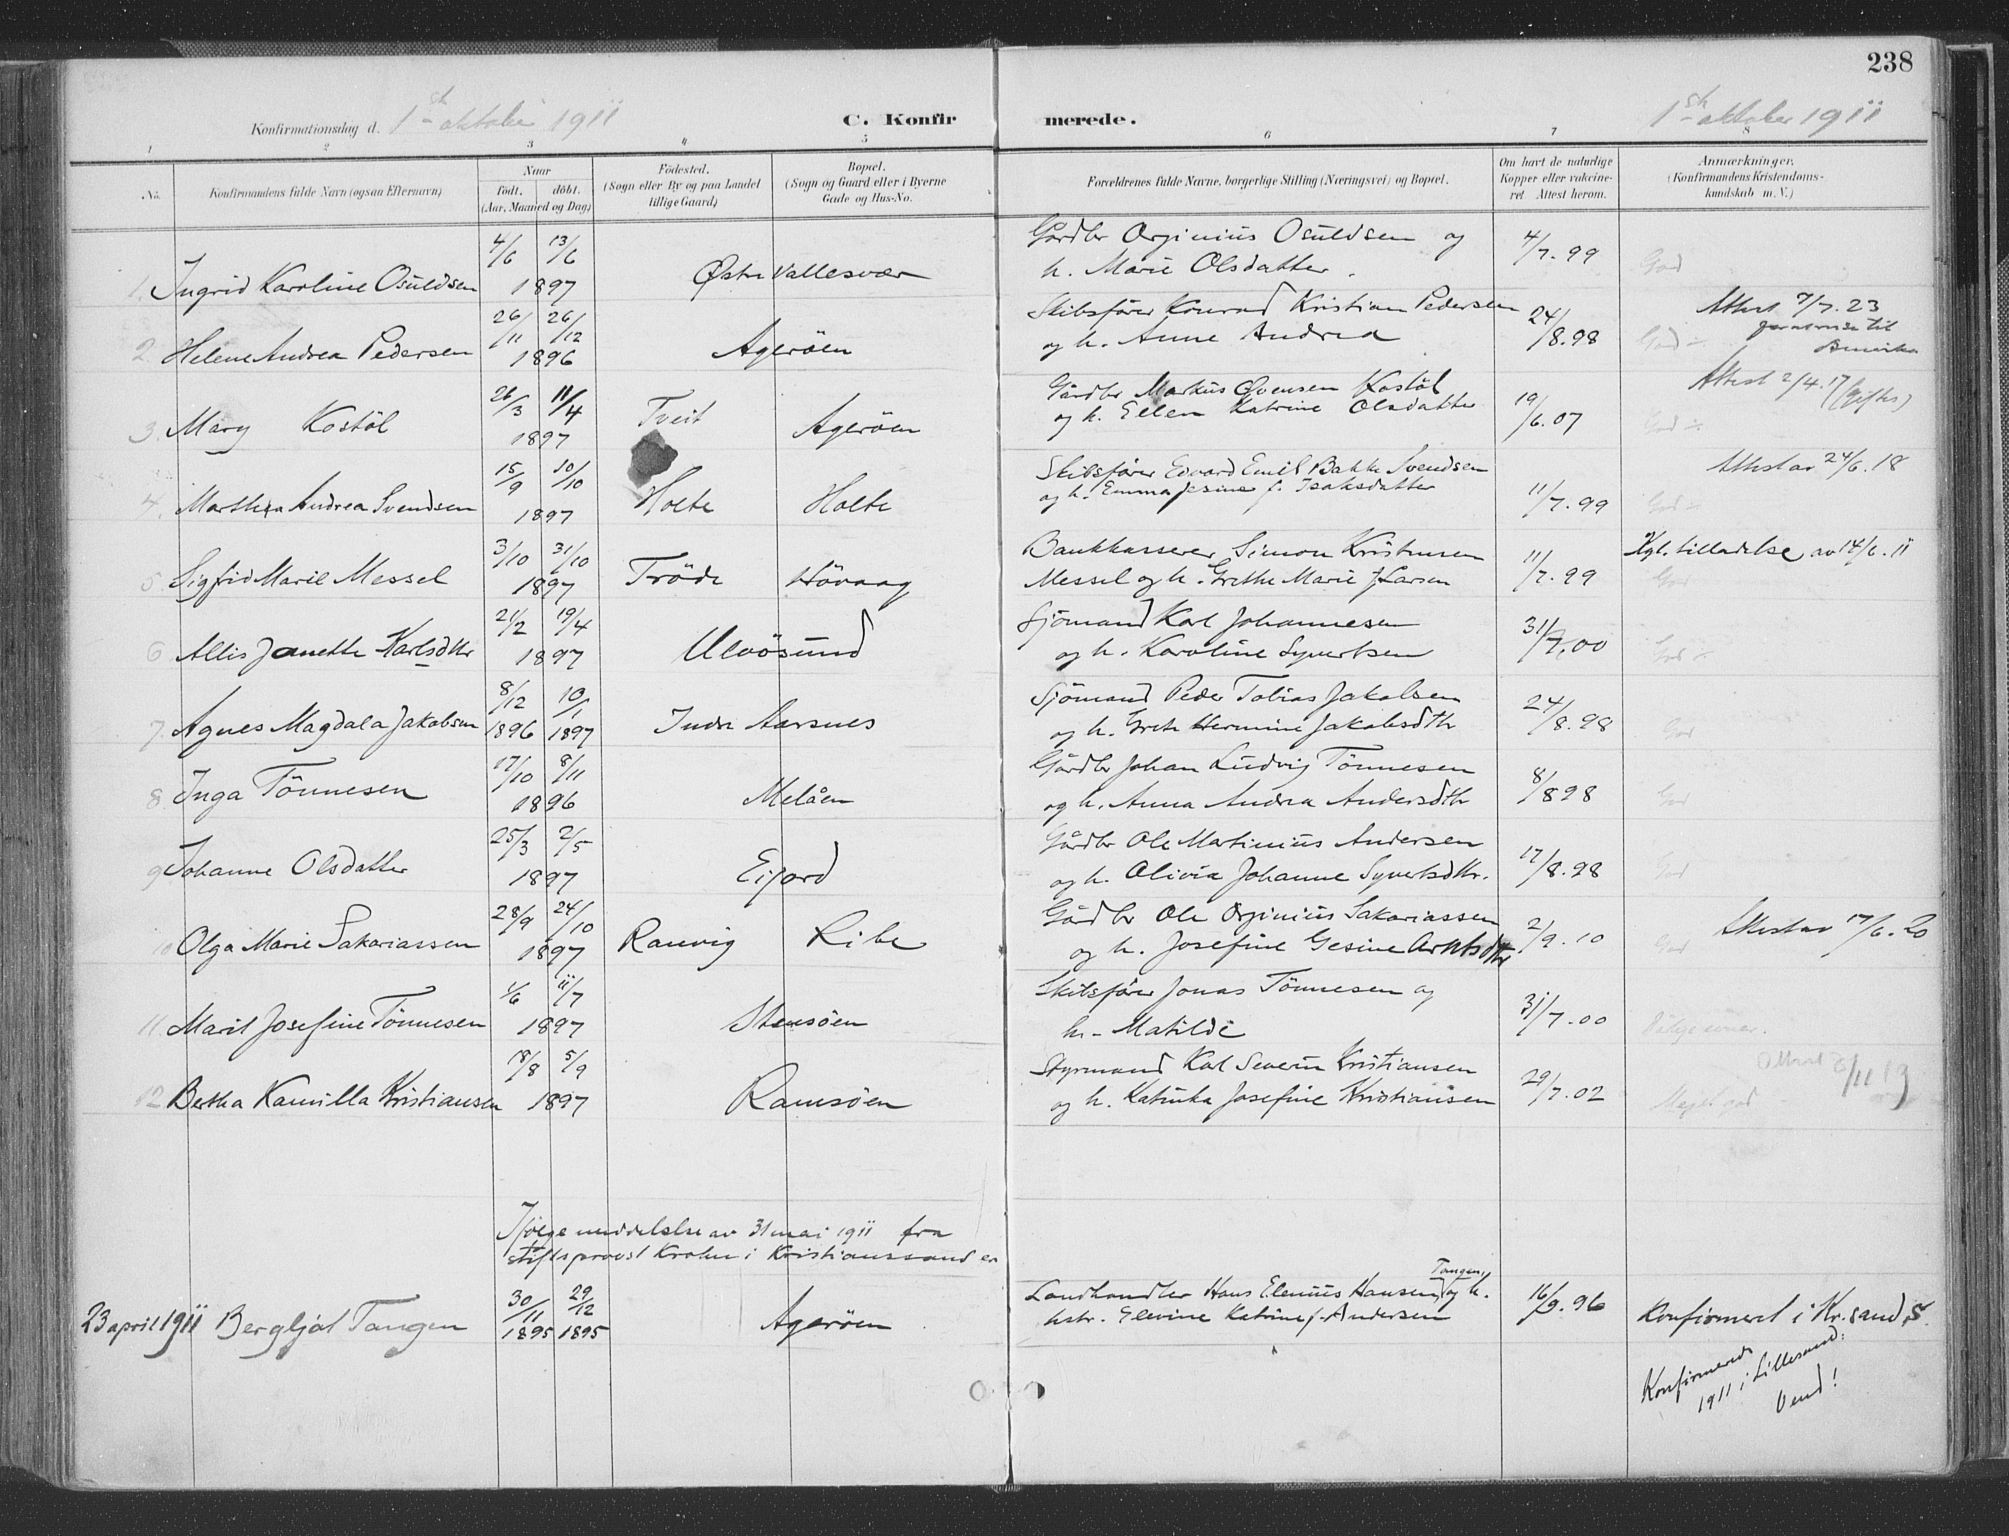 238
Konfirmationsdag d. 1ste oktober 1911 C. Konfirmerede. 1ste oktober 1911
1 2 3 4 5 6 7 8
No. Konfirmandens fulde Navn (ogsaa Efternavn)
Naar födt. döbt. (Aar, Maaned og Dag)
Födested. (Sogn eller By og paa Landet tillige Gaard)
Bopæl. (Sogn og Gaard eller i Byerne Gade og Hus-No.
Forældrenes fulde Navne, borgerlige Stilling (Næringsvei) og Bopæl.
Om havt de naturlige Kopper eller vakcineret Attest herom.
Anmærkninger. (Konfirmandens Kristendomskundskab m. V.)
1. Ingrid Karoline Osuldsen 4/6 13/6 1897 Østre Vallesvær Gårdbr Orginius Osuldsen og h. Marie Olsdatter. 4/7. 99 God
2. Helene Andrea Pedersen 26/11 26/12 1896 Ageröen Skibsförer Konrad Kristian Pedersen og h. Anne Andrea 24/8. 98 God Attest 7/7. 23 til Amerika
3. Mary Kostöl 26/3 11/4 1897 Tveit Ageröen Gårdbr Markus Ovensen Kostöl og h. Ellen Katrine Olsdatter 19/6. 07 God Attest 2/4. 17 (giftes)
4. Marthea Andrea Svendsen 15/9 10/10 1897 Holte Holte Skibsförer Edvard Emil Bakke Svendsen og h. Emma Jesine f. Isaksdatter 11/7. 99 God Attest av 24/6. 18
5. Sigfrid Marie Messel 3/10 31/10 1897 Tröde Hövaag Bankkasserer Simon Kristensen Messel og h. Grethe Marie f Larsen 11/7. 99 Kgl. tilladelse av 14/6. 11 God
6 Allis Janette Karlsdtr 21/2 19/4 1897 Ulvösund Sjömand Karl Johannesen og h. Karoline Syvertsen 31/7. 00 God
7. Agnes Magdala Jakobsen 8/12 1896 10/1 1897 Indre Aarsnes Sjömand Peder Tobias Jakobsen og h. Grete Hermine Jakobsdtr 24/8. 98 God
8. Inga Tönnesen 17/10 8/11 1896 Melåen Gårdbr Johan Ludvig Tönnesen og h. Anna Andrea Andersdtr 8/8 98 God
9 Johanne Olsdatter 25/3 2/5 1897 Eijord Gårdbr Ole Martinius Andersen og h. Olivia Johanne Syvertsdtr. 17/8. 98 God
10 Olga Marie Sakariassen 28/9 24/10 1897 Ranvig Ribe Gårdbr Ole Orginius Sakariassen og h. Josefine Gesine Arntsdtr 2/9. 10 God Attest av 17/6. 20
11. Marit Josefine Tönnesen 4/6 11/7 1897 Stensöen Skibsförer Jonas Tönnesen og h. Matilde 31/7. 00
12 Bertha Kamilla Kristiansen 18/8 5/9 1897 Ramsöen Styrmand Karl Severin Kristiansen og h. Katinka Josefine Kristiansen 29/7. 02 Meget god Attest 2/11 19
Ifölge meddelelse av 31 mai 1911 fra
stiftsprovst Krohn i Kristianssand er
23 april 1911 Bergljot Tangen 30/11 1895 29/12 1895 Ageröen Landhandler Hans Elenius Hansen Tangen, og h. hstr. Elevine Katrine f. Andersen 16/9. 96 Konfirmeret i Kr.sand S.
Konfirmerede
1911 i Lillesand:
Vend!